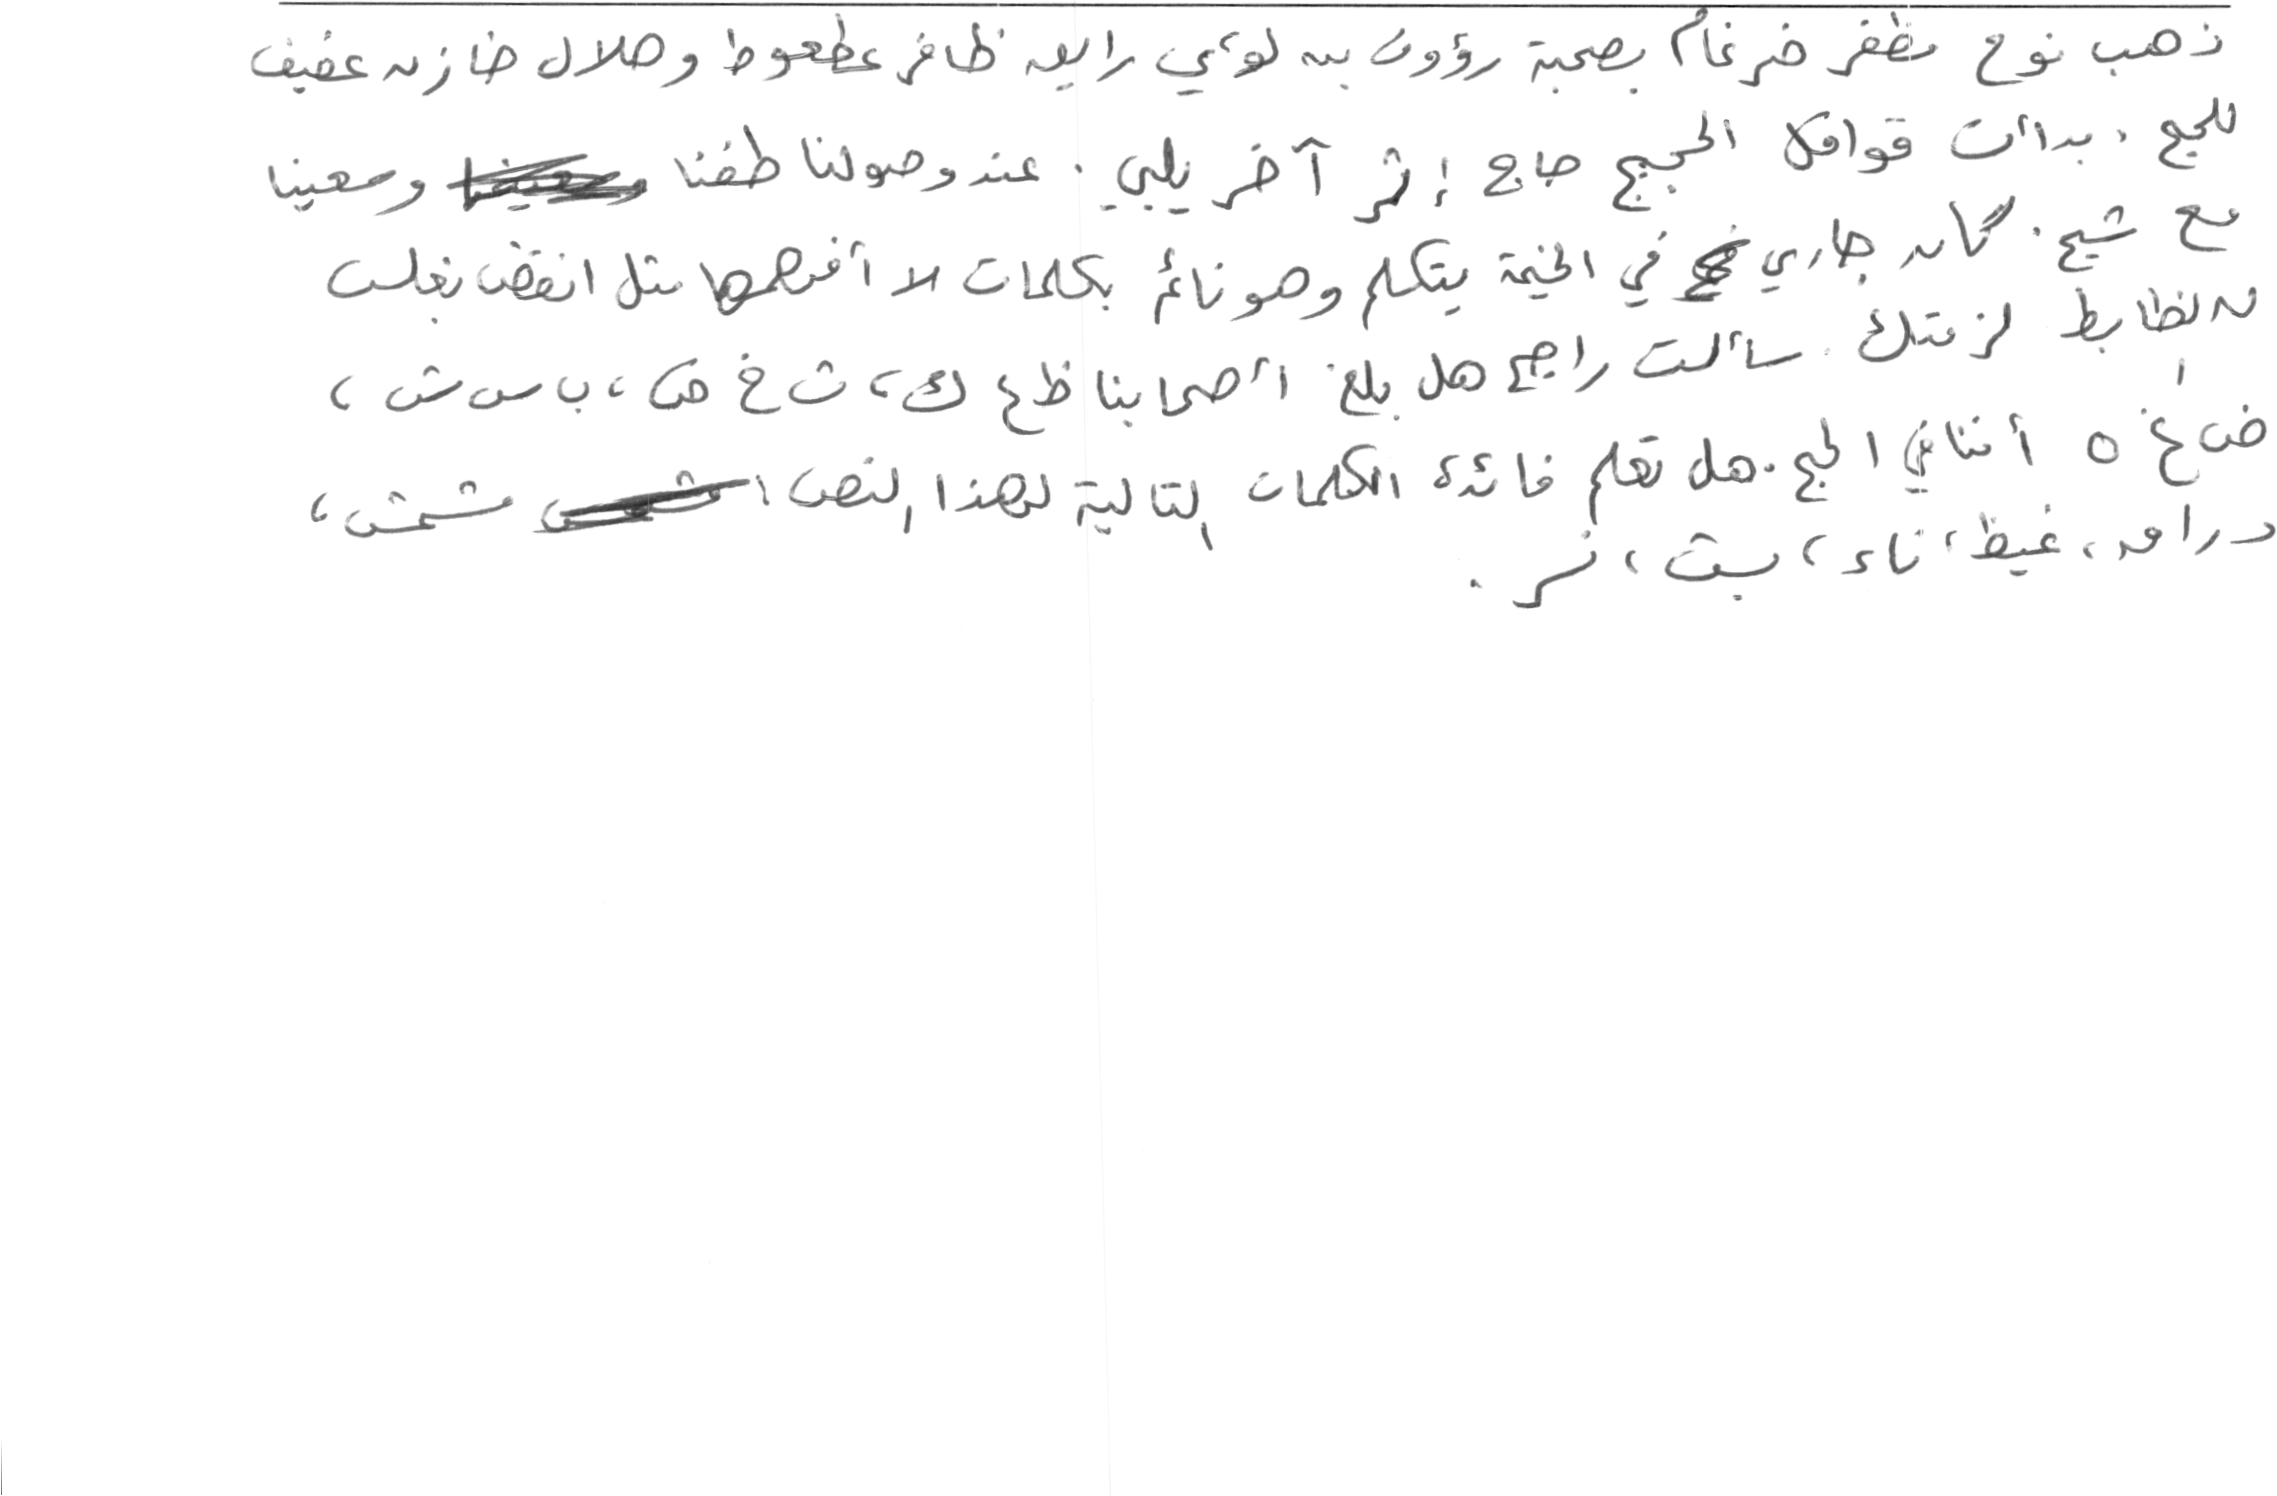 ذهب نوح مظفر ضرغام بصحبة رؤوف بن لؤي رايق ظافر عطعوط وهلال خازن عفيف
للحج . بدأت قوافل الحجيج حاج إثر آخر يلبي . عند وصولنا طفنا وسعينا
مع شيخ . كان جاري في الخيمة يتكلم وهو نائم بكلمات لا أفهمها مثل انقض بغلس
لا لظابط لز متك . سألت راجح هل بلغ أصحابنا ظ ع ك ، ث خ ص ، ب س ش ،
ض غ ه أننا في الحج . هل تعلم فائدة الكلمات التالية لهذا النص : شمش ،
دراق ، غيظ ، ناء ، بيت ، نر .